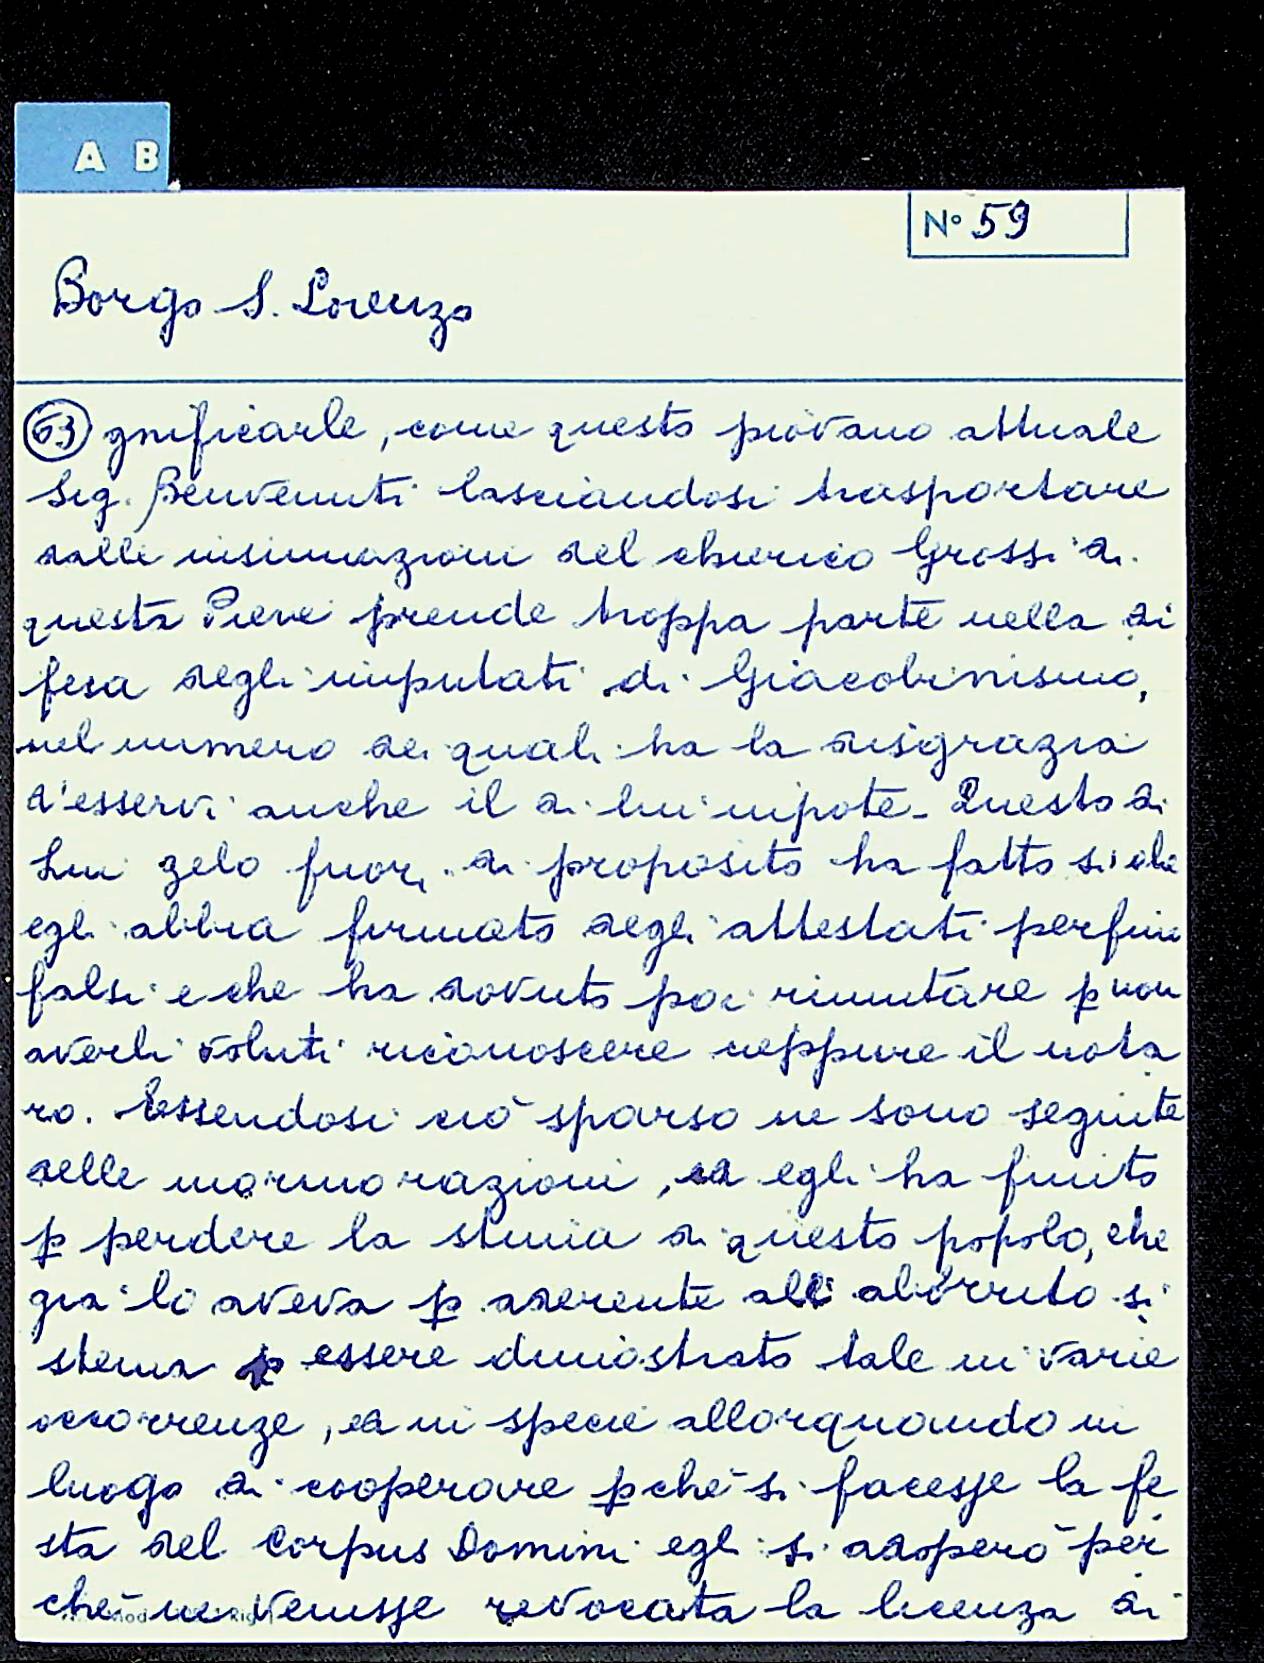 A B
N° 59
Borgo S. Lorenzo
63 gnificarle, come questo piovano attuale
Sig. Benvenuti lasciandosi trasportare
dalle insinuazioni del cherico Grossi di
questa Pieve prende troppa parte nella di
fesa degli imputati di Giacobinismo,
nel numero dei quali ha la disgrazia
d'esservi anche il di lui nipote. Questo di
Lui zelo fuori di proposito ha fatto si che
egli abbia firmato degli attestati perfino
falsi e che ha dovuto poi rimutare p non
averli voluti riconoscere neppure il nota
ro. Essendosi ciò sparso ne sono seguite
delle mormorazioni, ed egli ha finito
p perdere la stima di questo popolo, che
gia lo aveva p aderente all aborrito si
stema p essere dimostrato tale in varie
occorrenze, ed in specie allorquando in
luogo di cooperare pchè si facesse la fe
sta del Corpus Domini egli si adoperò per
chè ne venisse revocata la licenza di